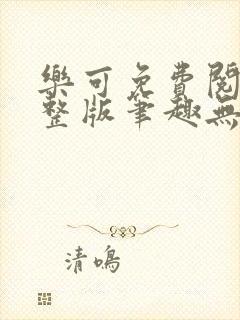 樂可免費閱
整版筆趣無
清鳴